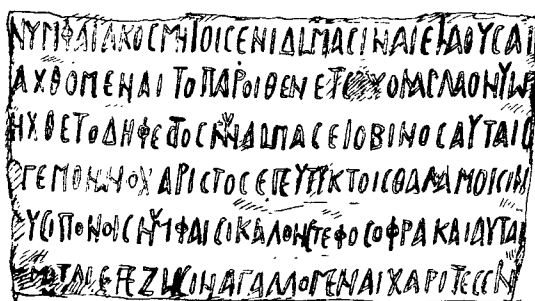 ΝΥΜΦΑΙΑΚΟϹΜΗΤΟΙϹΕΝΙΔΩΜΑϹΙΝΑΙΕΤΑΟΥϹΑΙ
ΑΧΘΟΜΕΝΑΙ ΤΟΠΑΡΟΙΘΕΝ ΑΓΛΑΟΝΥΔΩ
ΗΧΘΕΤΟΔΗ ΔΩΜΑϹΕΙΟΒΙΝΟϹΑΥΤΑΙϹ
ΓΕΜΟΝΩΝΟΧΑΡΙϹΤΟϹΕΠΕΥΠΗΚΤΟΙϹΘΑΛΑΜΟΙϹΙΝ
ΥϹΙΠΟΝΟΙϹΝΥΜΦΑΙϹΙΚΑΛΟΝϹΤΕΦΟϹΟΦΡΑΚΑΙΑΥΤΑΙ
ΖΩϹΙΝΑΓΑΛΛΟΜΕΝΑΙΧΑΡΙΤΕϹϹΙΝ